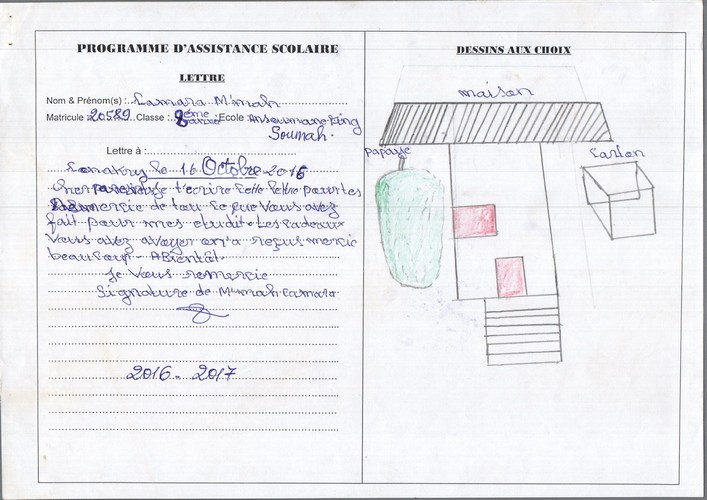 PROGRAMME D'ASSISTANCE SCOLAIRE
LETTRE
Nom & Prénom(s) : Camara M'mah
Matricule 20589 Classe : 8ème année Ecole : Ansoumane King
Soumah.
Lettre à :
Conakry le 16 Octobre 2016
Cher parenage t'ecrire cette lettre pour tes
Remercie de tou ce que vous avez
fait pour mes etudit. Les Cadeaux
Vous avez avoyer on'a reçus mercie
beaucoup - ABientât.
Je Vous remercie
Signature de M'mah Camara
2016 - 2017
DESSINS AUX CHOIX
maison
papaye
Carton